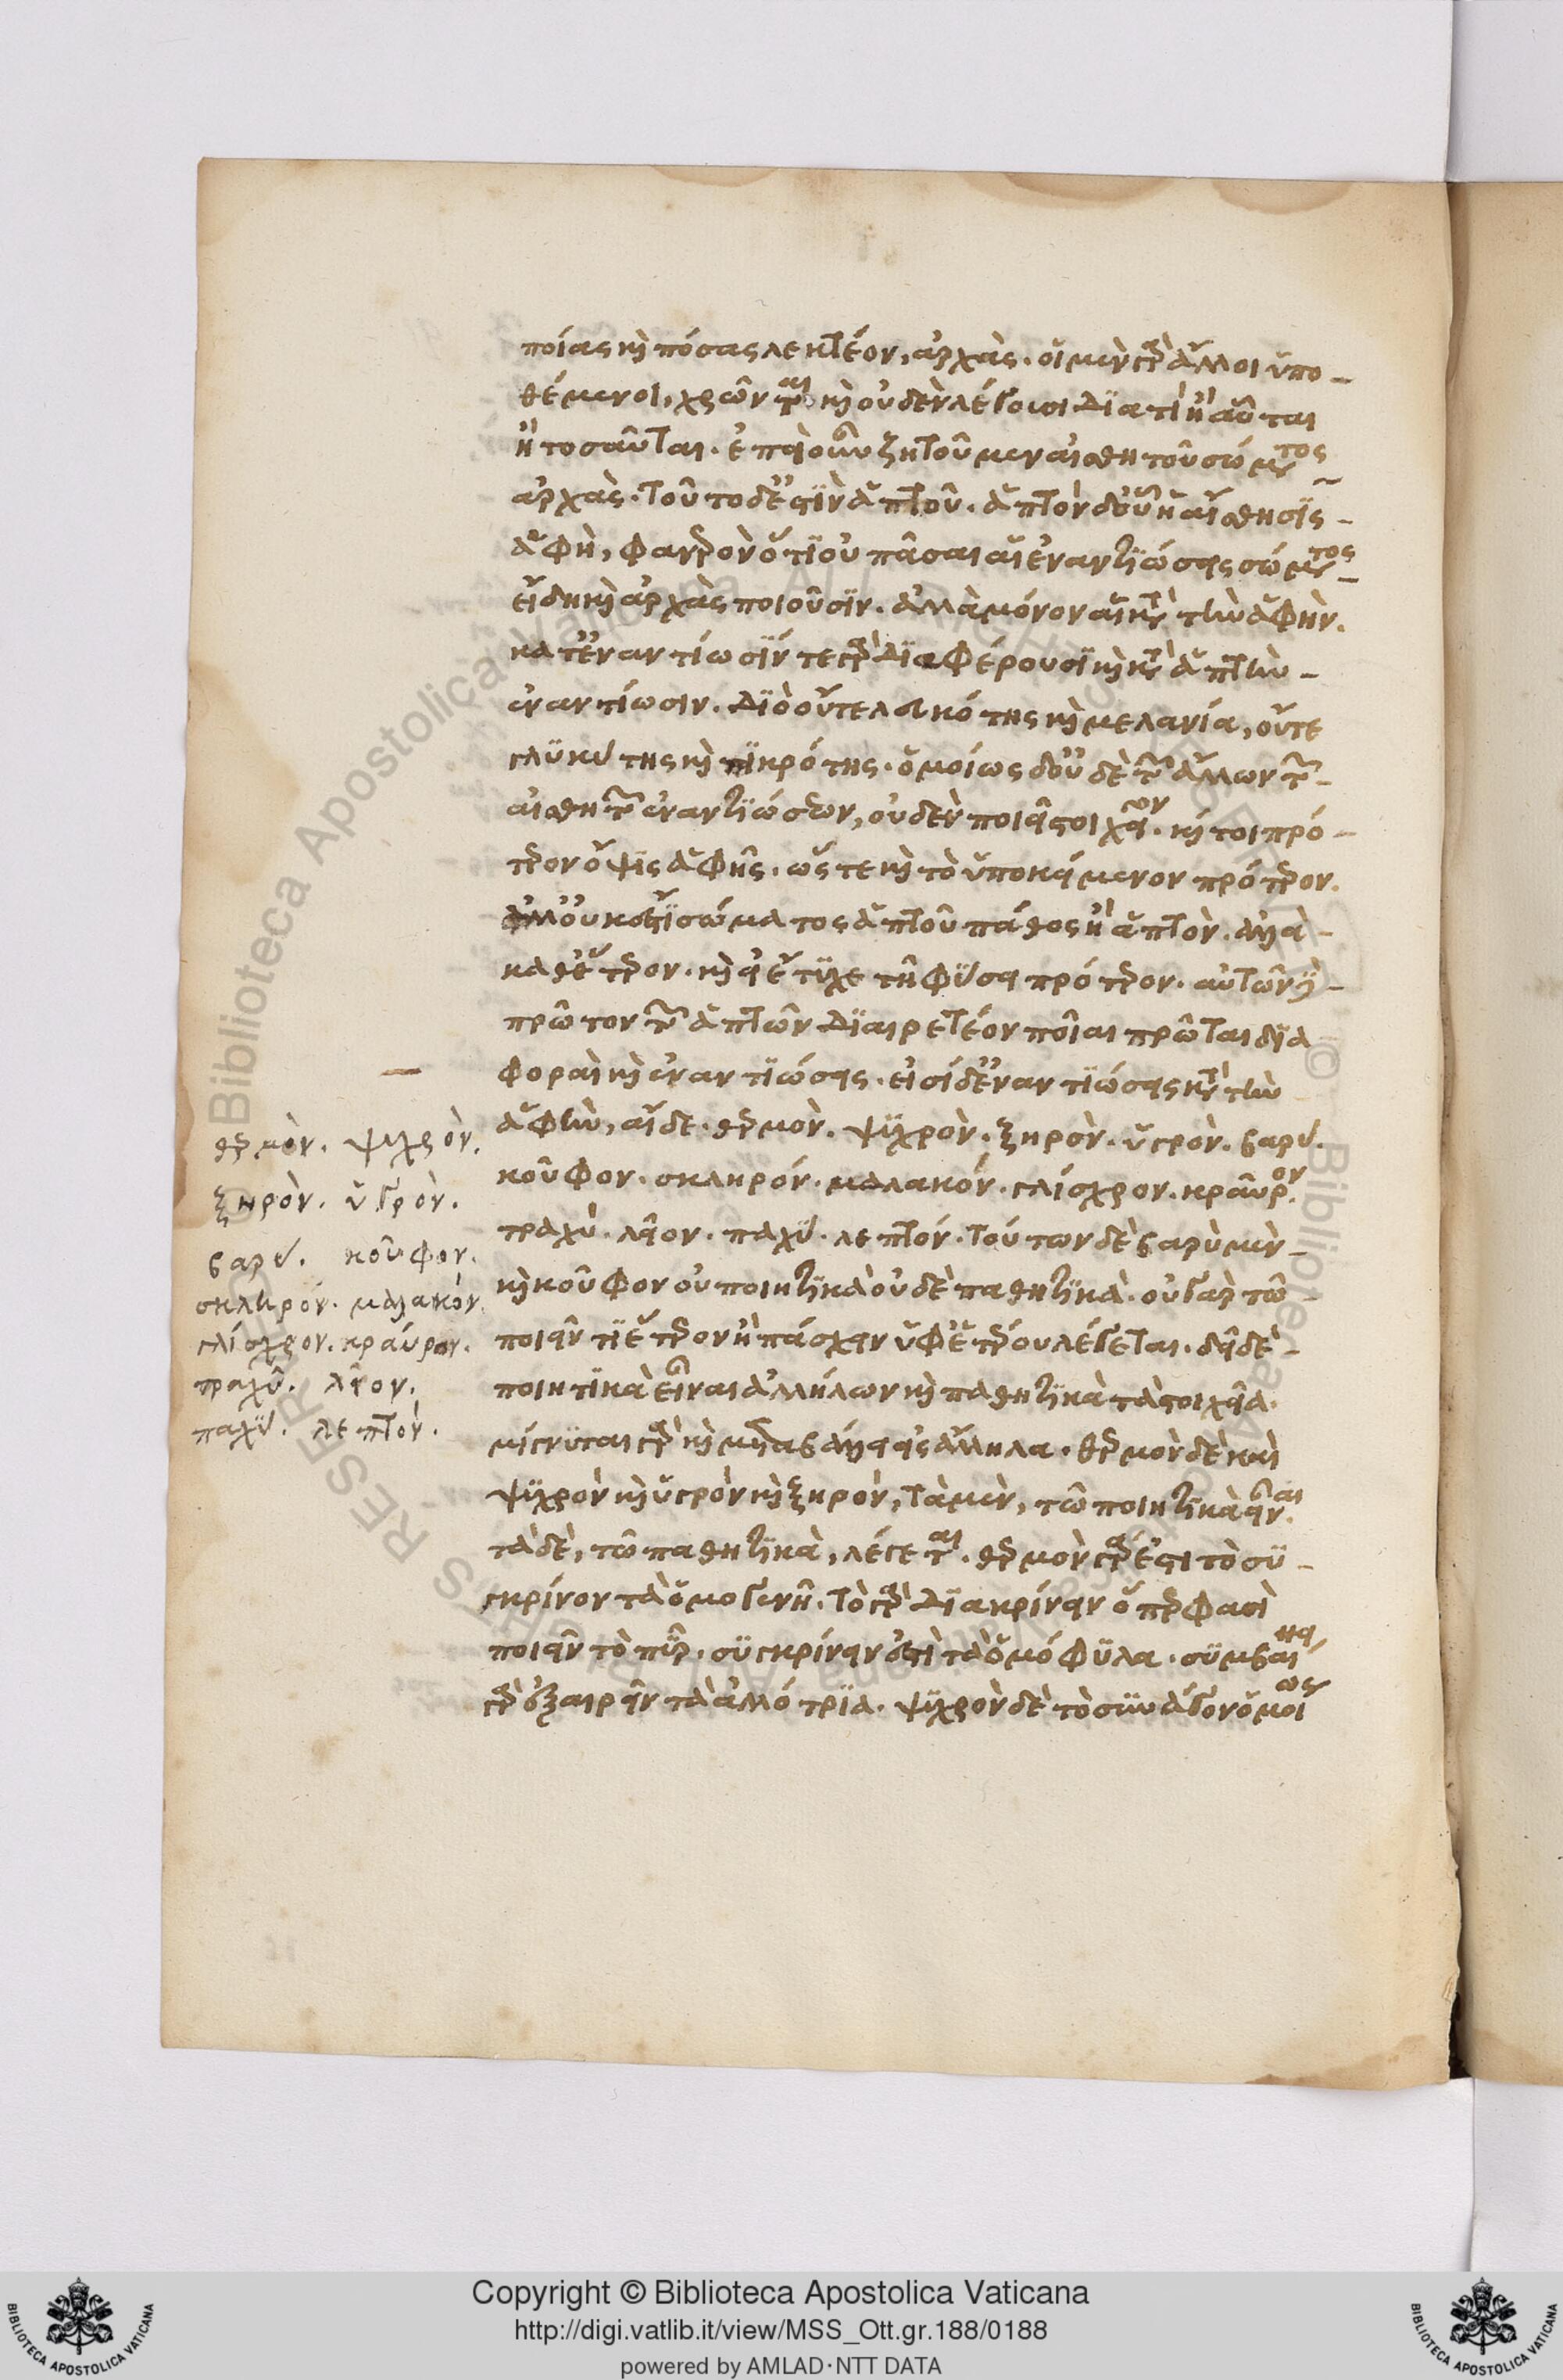 ποίας καὶ πόσας λεκτέον, ἀρχὰς. οἱ μὲν γὰρ ἄλλοι ὑπο-
θέμενοι, χρῶνται καὶ οὐδὲν λέγουσι διατί ἢ αὗται
ἢ τοσαῦται. ἐπεὶ οὖν ζητοῦμεν αἰσθητοῦ σώματος
ἀρχὰς. τοῦτο δ' ἐστὶν ἁπτοῦ. ἁπτὸν δ' οὗ ἡ αἴσθησις
ἁφὴ, φανερὸν ὅτι οὐ πᾶσαι αἱ ἐναντιώσεις σώματος
εἴδη καὶ ἀρχὰς ποιοῦσιν. ἀλλὰ μόνον αἱ κατὰ τὴν ἁφὴν.
κατ' ἐναντίωσίν τε γὰρ διαφέρουσι καὶ κατὰ ἁπτὴν
ἐναντίωσιν. διὸ οὔτε λευκότης καὶ μελανία, οὔτε
γλυκύτης καὶ πικρότης. ὁμοίως δ' οὐδὲ τῶν ἄλλων τῶν
αἰσθητῶν ἐναντιώσεων, οὐδὲν ποιεῖ στοιχεῖον. καί τοι πρό-
τερον ὄψις ἁφῆς. ὥστε καὶ τὸ ὑποκείμενον πρότερον.
ἀλλ' οὐκ ἔστι σώματος ἁπτοῦ πάθος ἢ ἁπτὸν. ἀλλὰ
καθ' ἕτερον. καὶ εἰ ἔτυχε τῇ φύσει πρότερον. αὐτῶν δὲ
πρῶτον τῶν ἁπτῶν διαιρετέον ποῖαι πρῶται δια
φοραὶ καὶ ἐναντιώσεις. εἰσὶ δ' ἐναντιώσεις κατὰ τὴν
ἁφὴν, αἵδε. θερμὸν. ψυχρὸν. ξηρὸν. ὑγρὸν. βαρύ.
κοῦφον. σκληρόν. μαλακόν. γλίσχρον. κραῦρον.
τραχὺ. λεῖον. παχύ. λεπτόν. τούτων δὲ βαρὺ μὲν
καὶ κοῦφον οὐ ποιητικὰ οὐδὲ παθητικὰ. οὐ γὰρ τῷ
ποιεῖν τι ἕτερον ἢ πάσχειν ὑφ' ἑτέρου λέγεται. δεῖ δὲ
ποιητικὰ εἶναι ἀλλήλων καὶ παθητικὰ τὰ στοιχεῖα.
μίγνυται γὰρ καὶ μεταβάλλει εἰς ἄλληλα. θερμὸν δὲ καὶ
ψυχρὸν καὶ ὑγρὸν καὶ ξηρὸν, τὰ μὲν, τῷ ποιητικὰ εἶναι.
τὰ δὲ, τῷ παθητικὰ, λέγεται. θερμὸν γάρ ἐστι τὸ συ-
γκρίνον τὰ ὁμογενῆ. τὸ γὰρ διακρίνειν ὅπερ φασὶ
ποιεῖν τὸ πῦρ. συγκρίνειν ἐστὶ τὰ ὁμόφυλα. συμβαίνει
γὰρ ἐξαιρεῖν τὰ ἀλλότρια. ψυχρὸν δὲ τὸ συνάγον ὁμοίως
θερμὸν. ψυχρὸν.
ξηρὸν. ὑγρὸν.
βαρύ. κοῦφον.
σκληρόν. μαλακόν
γλίσχρον. κραύρον.
τραχῦ. λεῖον.
παχύ. λεπτὸν.
© Biblioteca Apostolica Vaticana
Copyright © Biblioteca Apostolica Vaticana
http://digi.vatlib.it/view/MSS_Ott.gr.188/0188
powered by AMLAD·NTT DATA
BIBLIOTECA APOSTOLICA VATICANA
BIBLIOTECA APOSTOLICA VATICANA